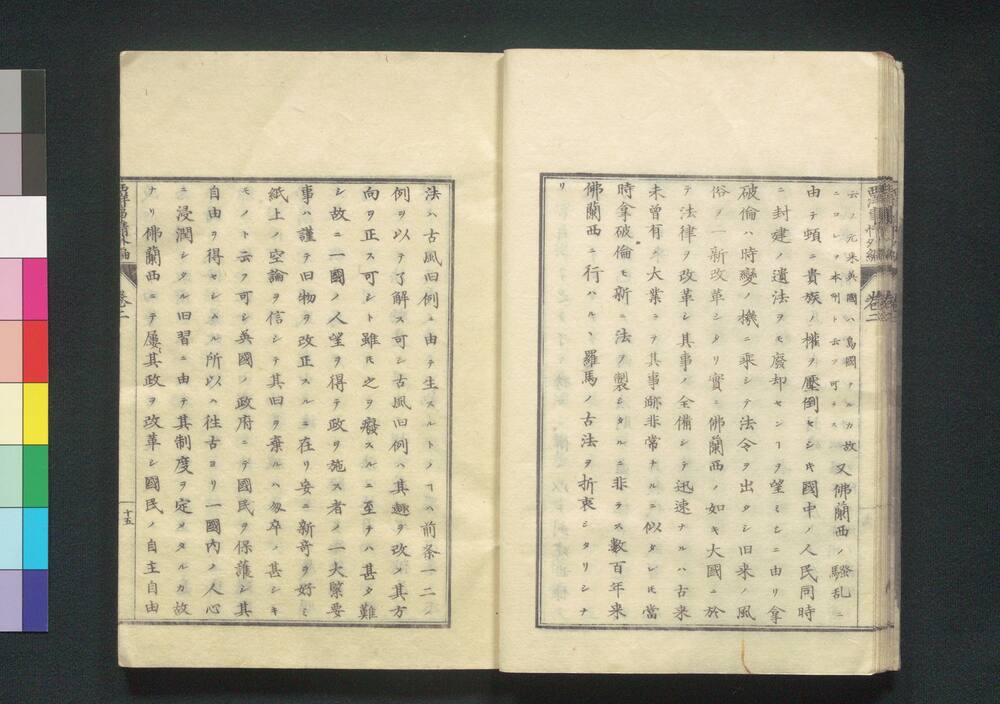 云フ元来英國ハ島國ナルカ故
ニコレヲ本州ト云フ可ラス
又佛蘭西ノ騒乱ニ
由テ頓ニ貴族ノ權ヲ壓倒セシ𪜈國中ノ人民同時
ニ封建ノ遺法ヲモ廢却センヿヲ望ミシニ由リ拿
破倫ハ時變ノ機ニ乘シテ法令ヲ出タシ旧来ノ風
俗ヲ一新改革シタリ實ニ佛蘭西ノ如キ大國ニ於
テ法律ヲ改革シ其事ノ全備シテ迅速ナルハ古来
未曾有ノ大業ニテ其事跡非常ナルニ似タレ𪜈當
時拿破倫モ新ニ法ヲ製シタルニ非ラス數百年来
佛蘭西ニ行ハルヽ羅馬ノ古法ヲ折衷シタリシナ
リ
西洋事情外編
卷之二
法ハ古風旧例ニ由テ生スルトノヿハ前条一二ノ
例ヲ以テ了解ス可シ古風旧例ハ其趣ヲ改メ其方
向ヲ正ス可シト雖𪜈之ヲ癈スルニ至テハ甚タ難
シ故ニ一國ノ人望ヲ得テ政ヲ施ス者ノ一大緊要
事ハ謹テ旧物ヲ改正スルニ在リ妄ニ新奇ヲ好ミ
紙上ノ空論ヲ信シテ其旧ヲ棄ルハ匆卒ノ甚シキ
モノト云フ可シ英國ノ政府ニテ國民ヲ保護シ其
自由ヲ得セシムル所以ハ徃古ヨリ一國内ノ人心
ニ浸潤シタル旧習ニ由テ其制度ヲ定メタルカ故
ナリ佛蘭西ニテ屢其政ヲ改革シ國民ノ自主自由
卷之二
十五